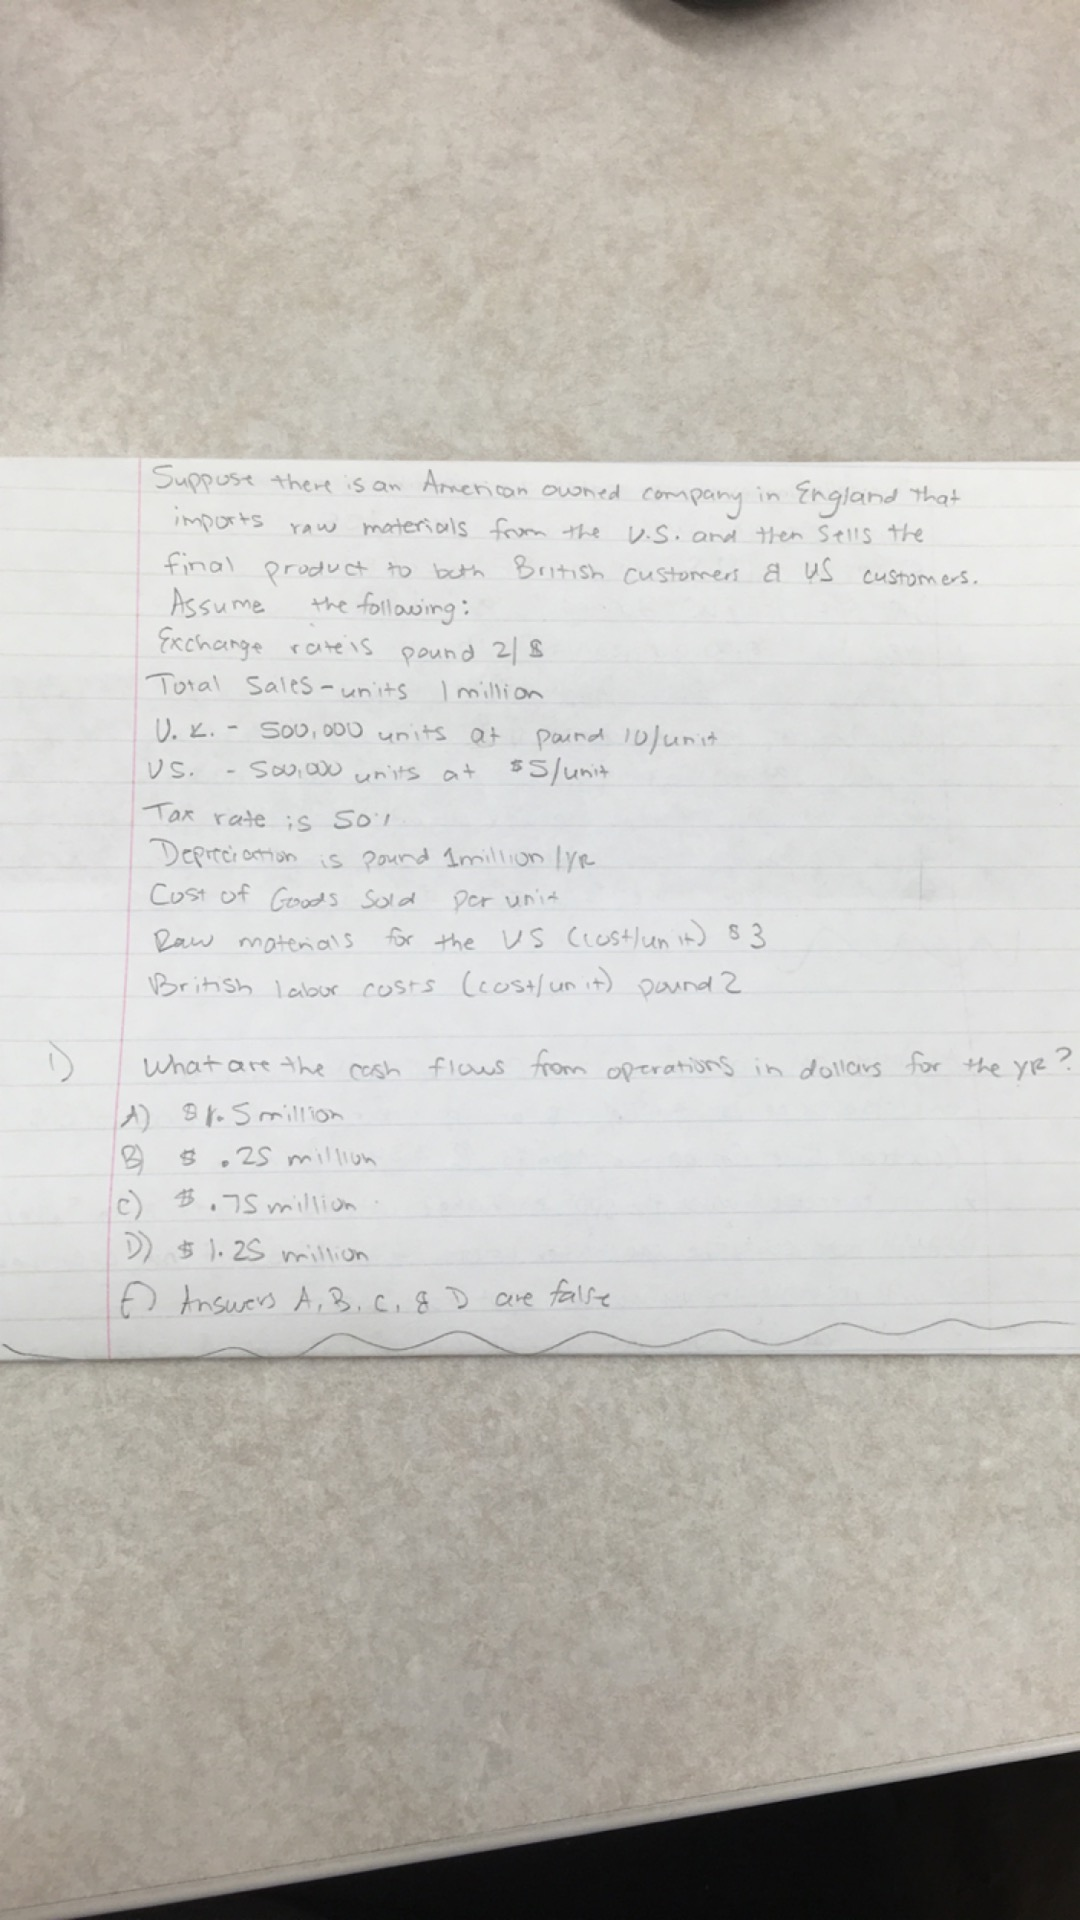 Suppose there is an American owned company in England that
imports raw materials from the U.S. and then sells the
final product to both British customers & US customers.
Assume the following:
Exchange rate is pound 2/$
Total Sales-units 1 million
U.K. - 500,000 units at pound 10/unit
US. - 500,000 units at $5/unit
Tax rate is 50%
Depreciation is pound 1million /YR
Cost of Goods Sold per unit
Raw materials for the US (cost/unit) $3
British labor costs (cost/unit) pound 2
1) What are the cash flows from operations in dollars for the YR?
A) $1.5 million
B) $ .25 million
C) $.75 million
D) $1.25 million
E) Answers A, B, C, & D are false